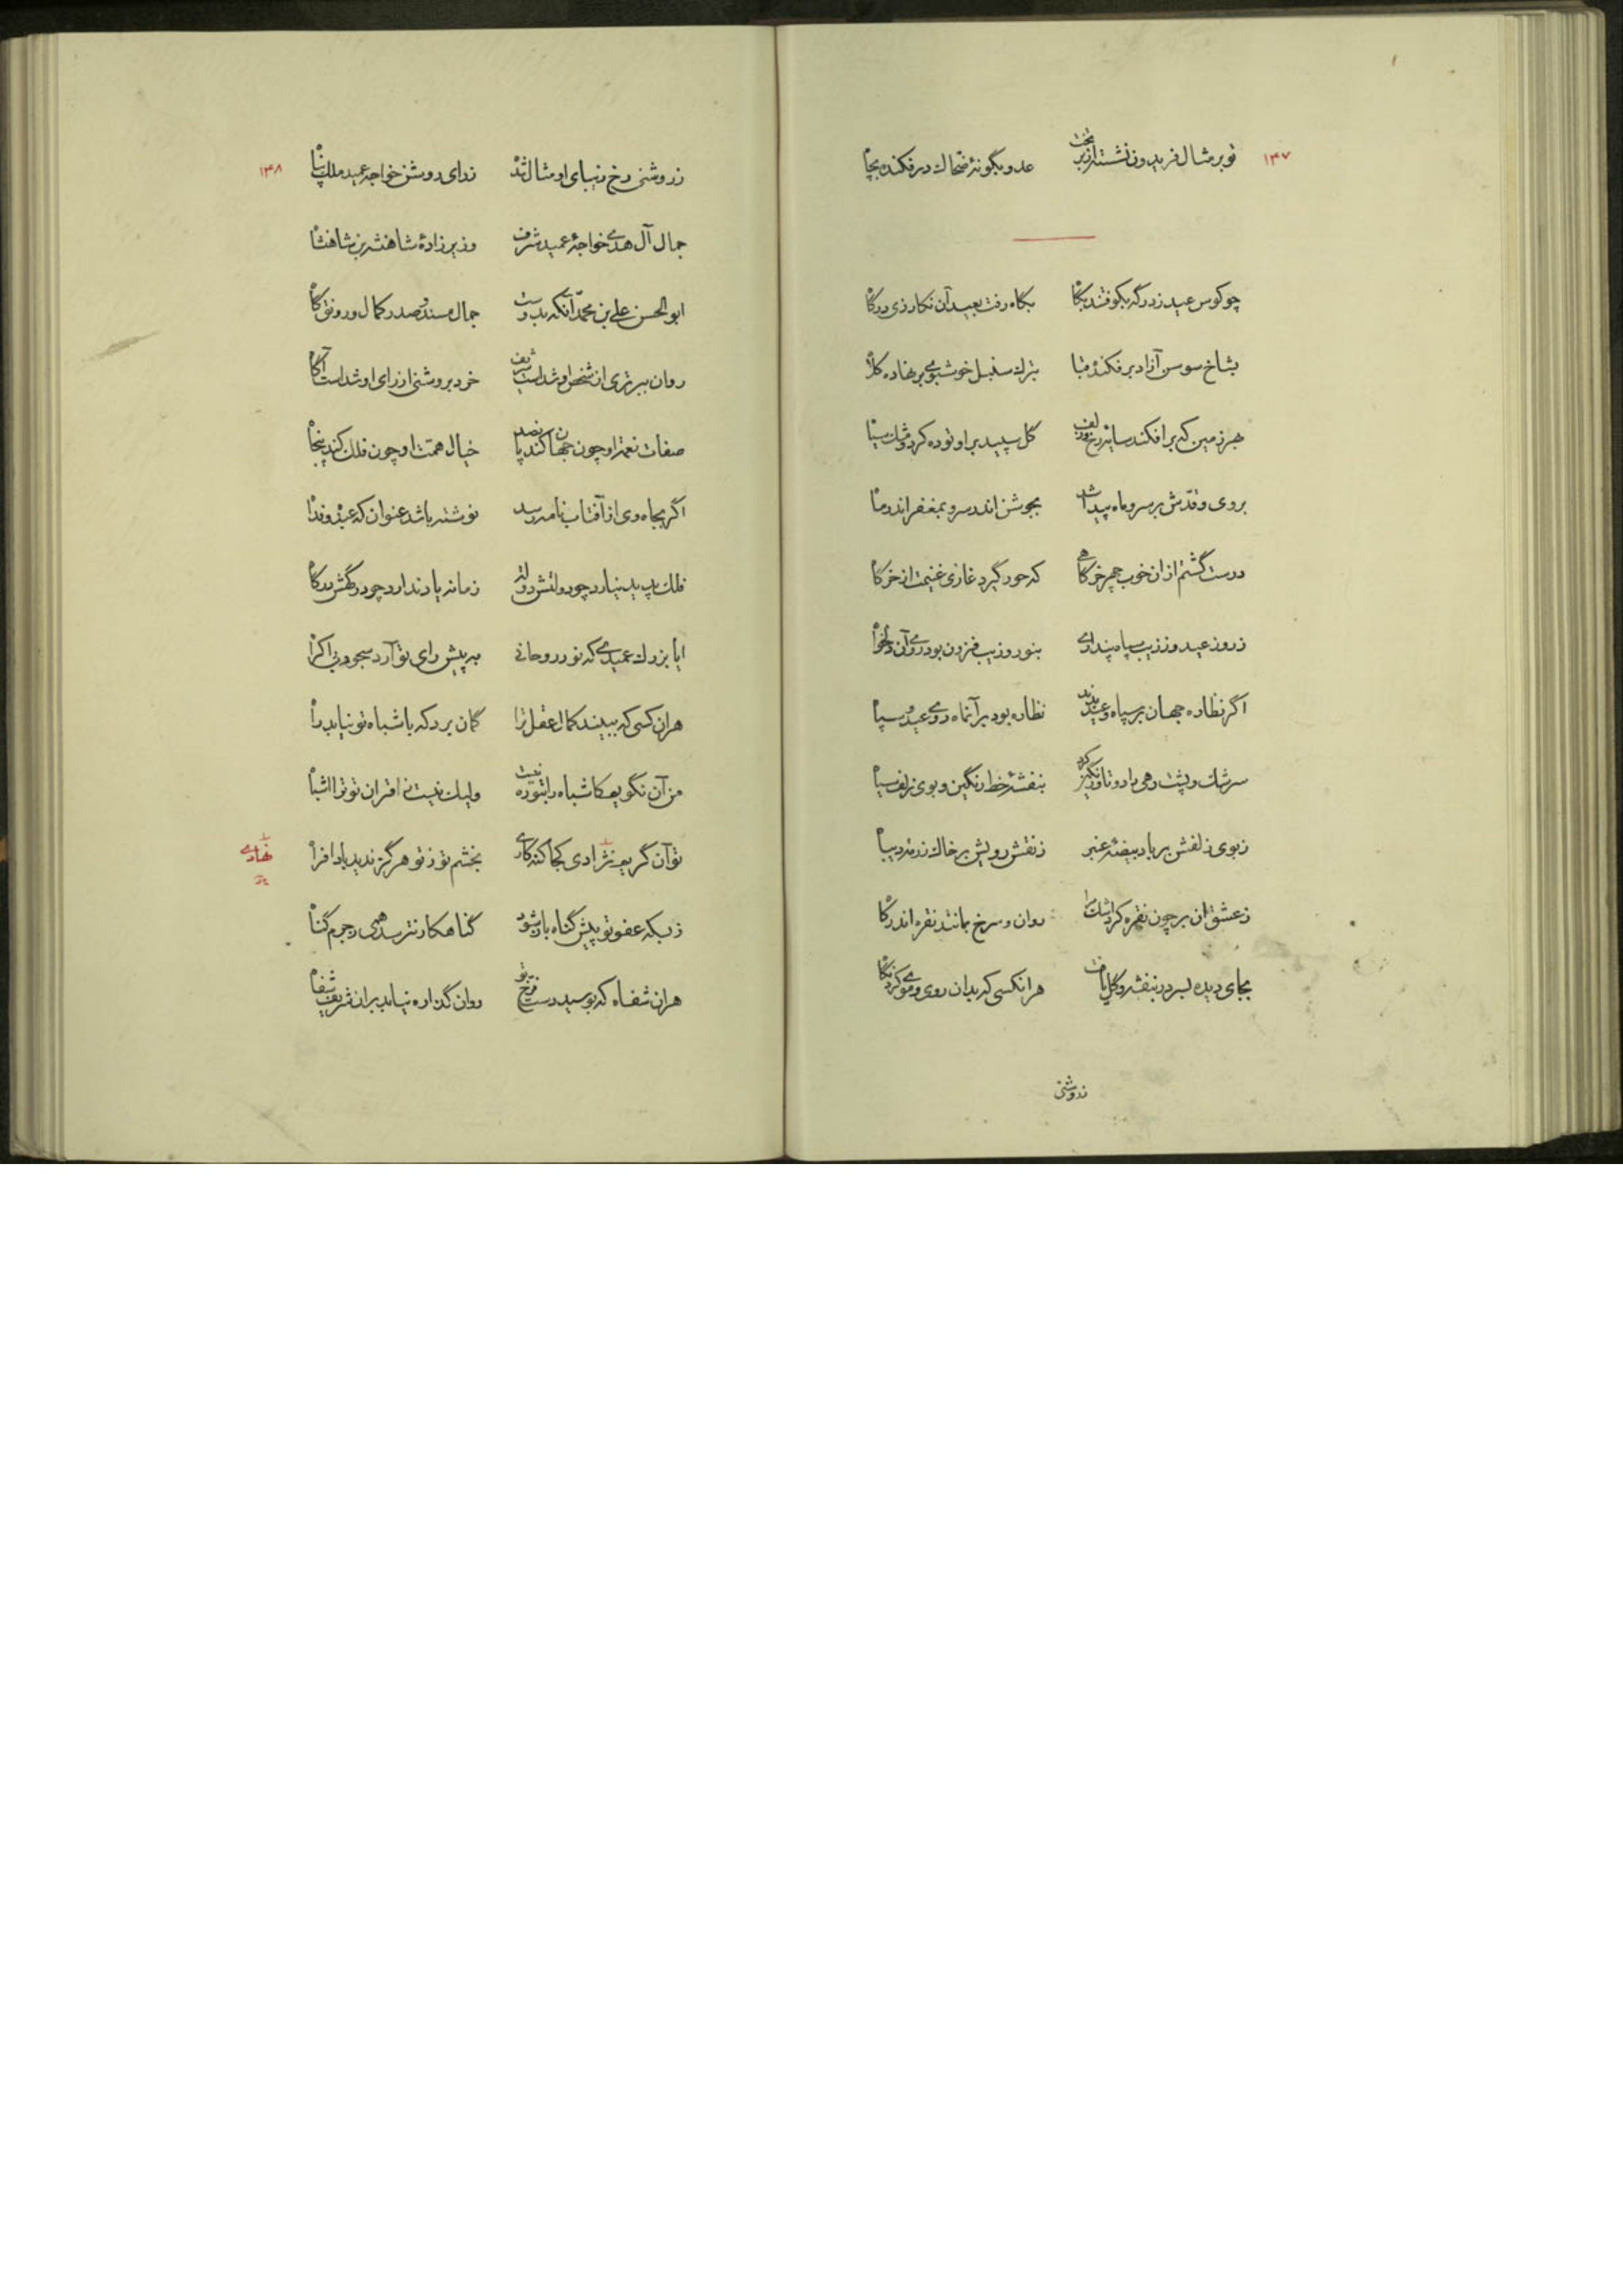 ۱۳۷
تو بر مثال فریدون نشسته از بر تخت عدو بگونهٔ ضحاک در فکنده بچاه
چو کوس عید ز درگه بکوفتند بگاه بگاه رفت بعید آن نگار زی درگاه
بشاخ سوسن آزاد بر فکنده قبا بترک سنبل خوشبوی بر نهاده کلاه
هر زمین که بر افکند سایه رخ و زلف گل سپید بر او توده کرد و مشک سیاه
بروی و قدش بر سرو ماه پیدا شد بجوشن اندر سرو بمغفر اندر ماه
درست گشتم از ان خوب چهر خرگاهی که حور گیرد غازی غنیمت از خرگاه
ز روز عید و ز زیب سپاه پنداری بنور و زیب فزون بود روی آن دلخواه
اگر نظاره جهان بر سپاه و عید بدند نظاره بود بر آنماه روی عید و سپاه
سرشک و پشت رهی را دوتا و رنگین کرد بنفشهٔ خط رنگین و بوی زلف سیاه
ز بوی زلفش بر باد بیضهٔ عنبر ز نقش رویش بر خاک رزمه دیباه
ز عشق ان بر چون نقره کرد اشک مرا روان و سرخ بمانند نقره اندر گاه
بجای دیده لبر در بنفشه و گل یافت هر انکسی که بدان روی و موی کرد نگاه
ز روشنی
۱۳۸
ز روشنی رخ زیبای او مثال شد ز رای روشن خواجه عمید ملک پناه
جمال آل هدی خواجهٔ عمید شرف وزیر زادهٔ شاهنشه بن شاهنشاه
ابو الحسن علی بن محمد آنکه بدوست جمال مسند و صدر و کمال و رونق گاه
روان ببرتری از شخص او شداست شریف خرد بروشنی از رای او شداست آگاه
صفات نعمت او چون جهان کند پانصد خیال همت او چون فلک کند پنجاه
اگر بجاه وی از آفتاب نامه رسد نوشته باشد عنوان که عبده و فداه
فلک پدید نیارد چو دولتش دولت زمانه یاد ندارد چو درگهش درگاه
ایا بزرک عمیدی که نور روحانی به پیش رای تو آرد سجود بی اکراه
هران کسی که ببیند کمال عقل ترا گمان برد که باشباه تو نیابد راه
من آن نگویم کاشباه را بتو ره نیست ولیک نیست نه اقران تو ترا اشباه
تو آن کریم نژادی کجا کنه کاری بخشم تو ز تو هرگز ندید باد افراه
نهادی
ز بسکه عفو تو پیش گناه باز شود گناهکار نترسد همی ز جرم گناه
هران شفاه که بوسید دست فرخ تو روان گذاره نیابد بران شریف شفاه